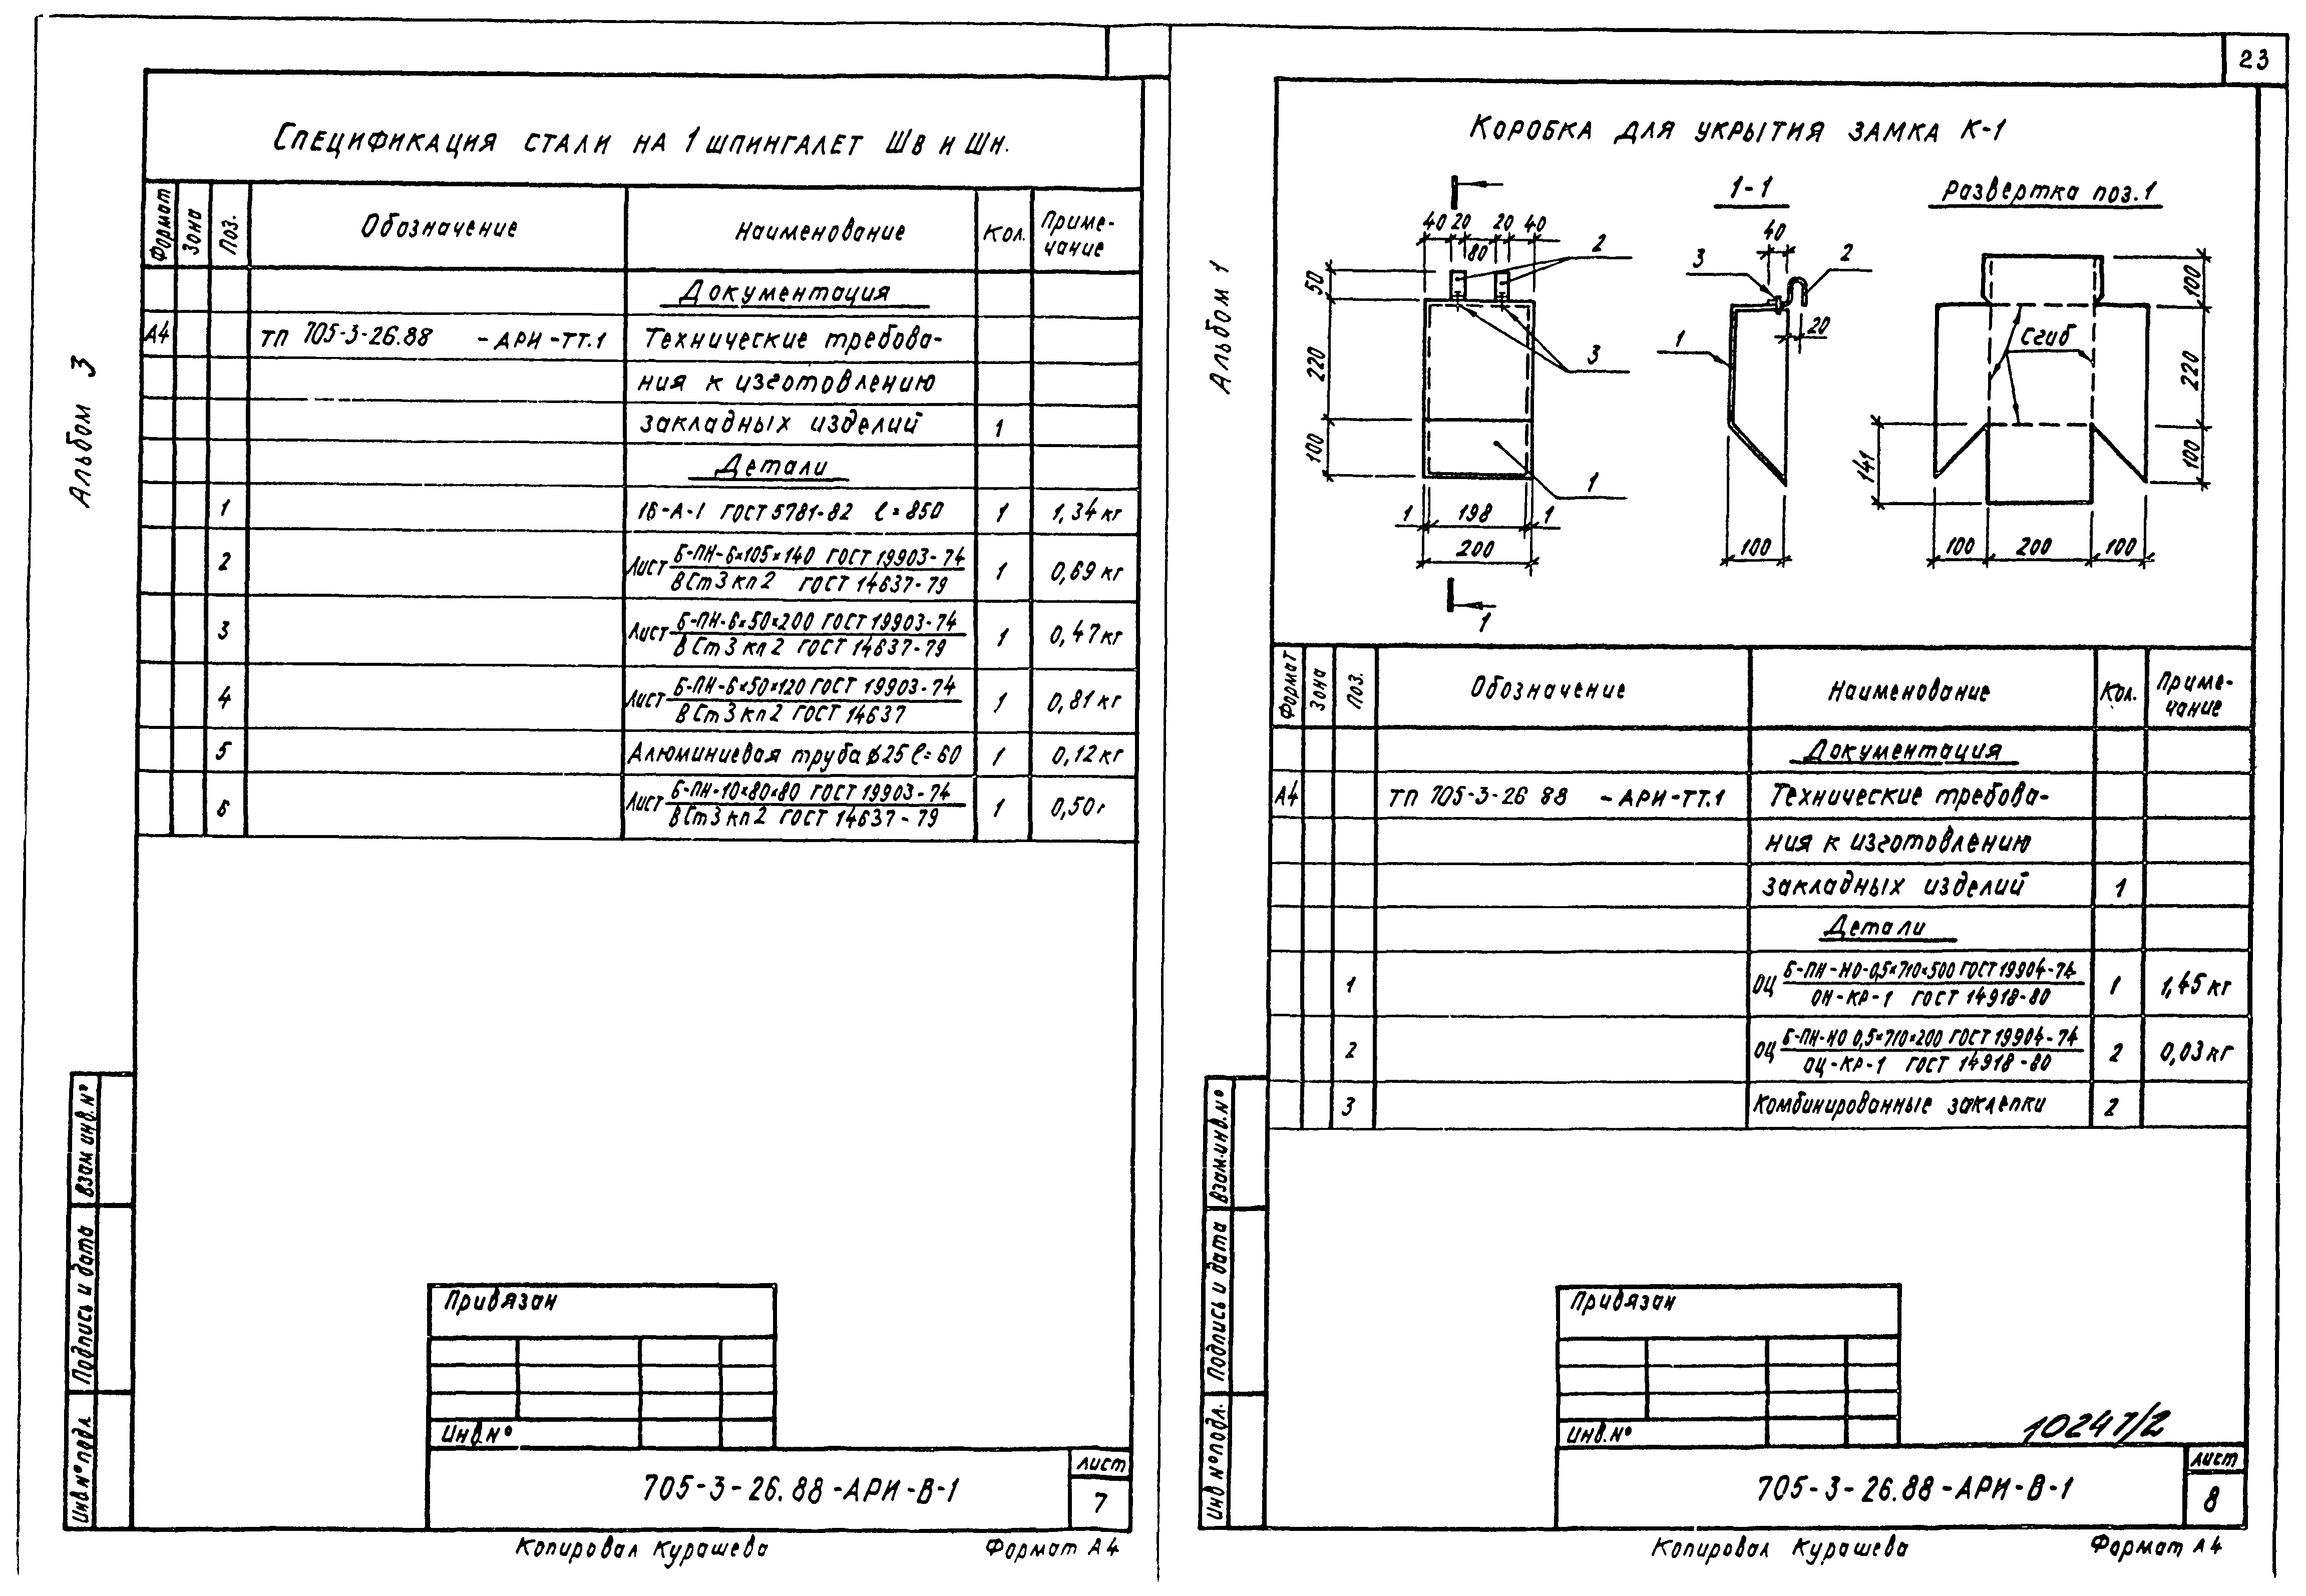 Альбом 3
Спецификация стали на 1 шпингалет Шв и Шн.
Формат Зона Поз. Обозначение Наименование Кол. Приме-
чание
Документация
А4 ТП 705-3-26.88 -АРИ-ТТ.1 Технические требова-
ния к изготовлению
закладных изделий 1
Детали
1 16-А-I ГОСТ 5781-82 ℓ=850 1 1,34 кг
2 Лист Б-ПН-6×105×140 ГОСТ 19903-74 1 0,69 кг
ВСт3кп2 ГОСТ 14637-79
3 Лист Б-ПН-6×50×200 ГОСТ 19903-74 1 0,47кг
ВСт3кп2 ГОСТ 14637-79
4 Лист Б-ПН-6×50×120 ГОСТ 19903-74 1 0,81 кг
ВСт3кп2 ГОСТ 14637
5 Алюминиевая труба ⌀25 ℓ=60 1 0,12 кг
6 Лист Б-ПН-10×80×80 ГОСТ 19903-74 1 0,50 г
ВСт3кп2 ГОСТ 14637-79
Взам инв.N°
Подпись и дата
Инв.N°подл.
Привязан
Инв.N°
705-3-26.88-АРИ-В-1
лист
7
Копировал Курашева Формат А4
23
Альбом 1
Коробка для укрытия замка К-1
40 20 20 40
80
50
220
100
2
3
1
1 198 1
200
1
1-1
40
3
2
1
20
100
Развертка поз.1
Сгиб
100
220
100
141
100 200 100
Формат Зона Поз. Обозначение Наименование Кол. Приме-
чание
Документация
А4 ТП 705-3-26 88 -АРИ-ТТ.1 Технические требова-
ния к изготовлению
закладных изделий 1
Детали
1 ОЦ Б-ПН-НО-0,5×710×500 ГОСТ 19904-74 1 1,45 кг
ОН-КР-1 ГОСТ 14918-80
2 ОЦ Б-ПН-НО 0,5×710×200 ГОСТ 19904-74 2 0,03 кг
ОЦ-КР-1 ГОСТ 14918-80
3 Комбинированные заклепки 2
Взам.инв.N°
Подпись и дата
Инв N°подл.
Привязан
Инв.N°
10247/2
705-3-26.88-АРИ-В-1
лист
8
Копировал Курашева Формат А4